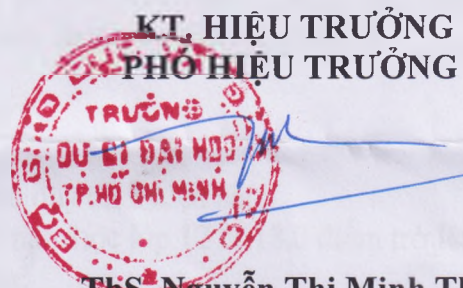 KT. HIỆU TRƯỞNG
PHÓ HIỆU TRƯỞNG
TRƯỜNG
DỰ BỊ ĐẠI HỌC
TP.HỒ CHÍ MINH
ThS. Nguyễn Thị Minh